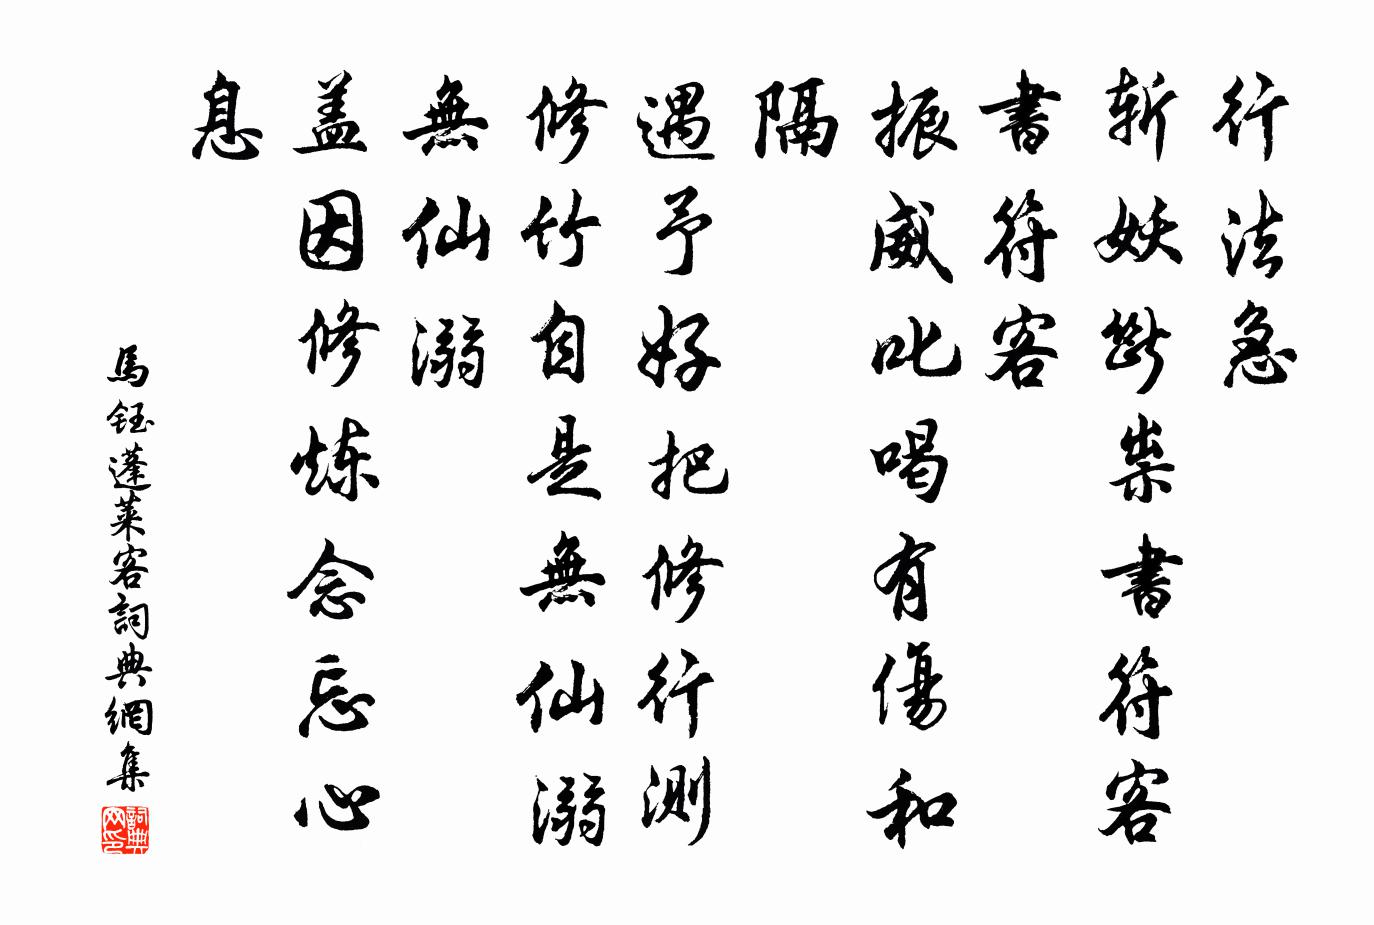 行法急
斬妖斷祟書符客
書符客
振威叱喝有傷和
隔
遇予好把修行測
修竹自是無仙溺
無仙溺
盖因修炼念忘心
息
馬鈺蓬萊客詞典網集
詞典
网印